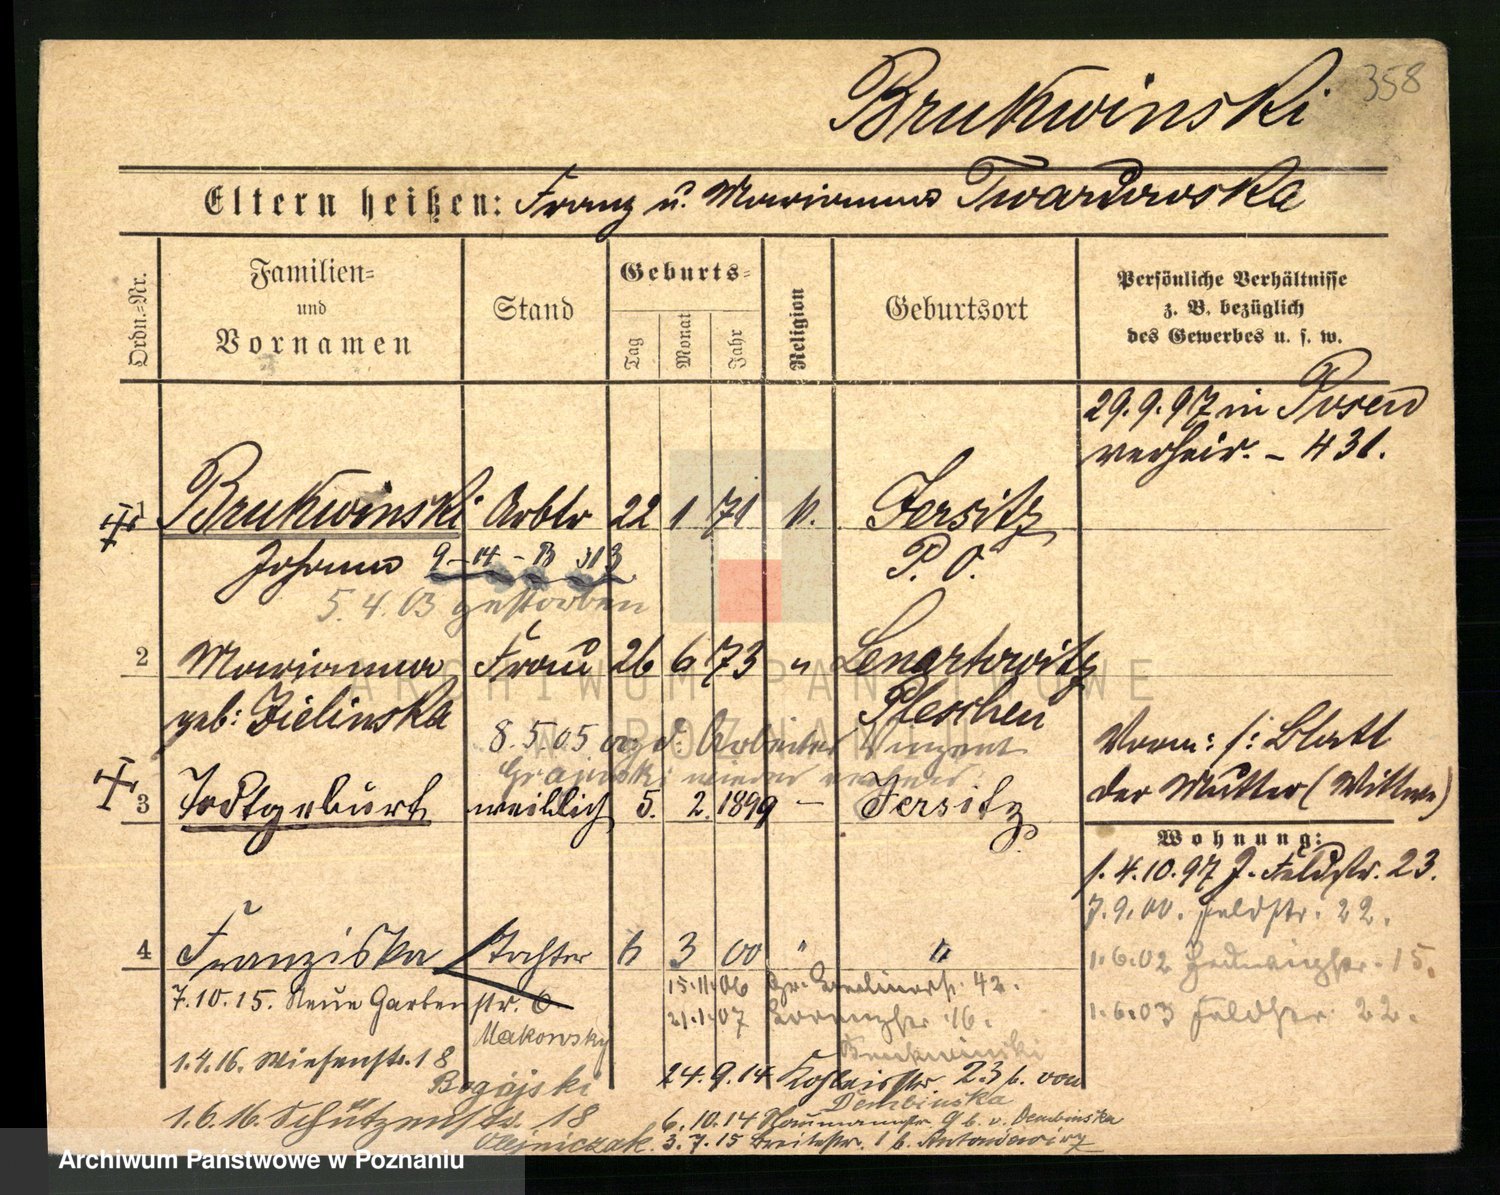 358
Brukwinski
Eltern heißen: Franz u. Marianna Twardowska
Ordn.-Nr.
Familien-
und
Vornamen
Stand
Geburts-
Tag
Monat
Jahr
Religion
Geburtsort
Persönliche Verhältnisse
z. B. bezüglich
des Gewerbes u. s. w.
29.9.97 in Posen
verheir. - 431.
1 Brukwinski Arbtr 22 1 71 k. Jersitz
Johann 9-14-B 313 P. O.
5.4.03 gestorben
2 Marianna Frau 26 6 73 " Lenartowitz
geb: Zielinska Pleschen
8.5.05 d: Arbeiter Vinzent
wieder
3 Todtgeburt weiblich 5. 2. 1899 - Jersitz
Vorm: s: Blatt
der Mutter (Wittwe)
Wohnung:
1.4.10.97 J. Feldstr. 23.
7.9.00. Feldstr. 22.
1.6.02 Hedwigstr. 15.
1.6.03 Feldstr. 22.
4 Franziska Tochter 6 3 00 " "
7.10.15. Neue Gartenstr. 6
Makowsky
15.11.06 Gr. Berlinerstr. 42.
21.1.07 16.
Brukwinski
1.4.16. Wiesenstr. 18
Bogajski
24.9.14 23 b. von
Dembinska
1.6.16. Schützenstr. 18
Olejniczak.
6.10.14 9 b. v. Dembinska
3.7.15 Breitestr. 1 b. Antoniewicz
ARCHIWUM PAŃSTWOWE
W POZNANIU
Archiwum Państwowe w Poznaniu